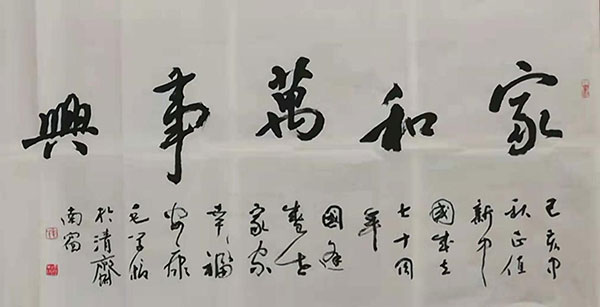 家和萬事興
己亥中
秋正值
新中
國成立
七十周
年
國逢
盛世
家家
幸福
安康
毛
於清齋
南窗